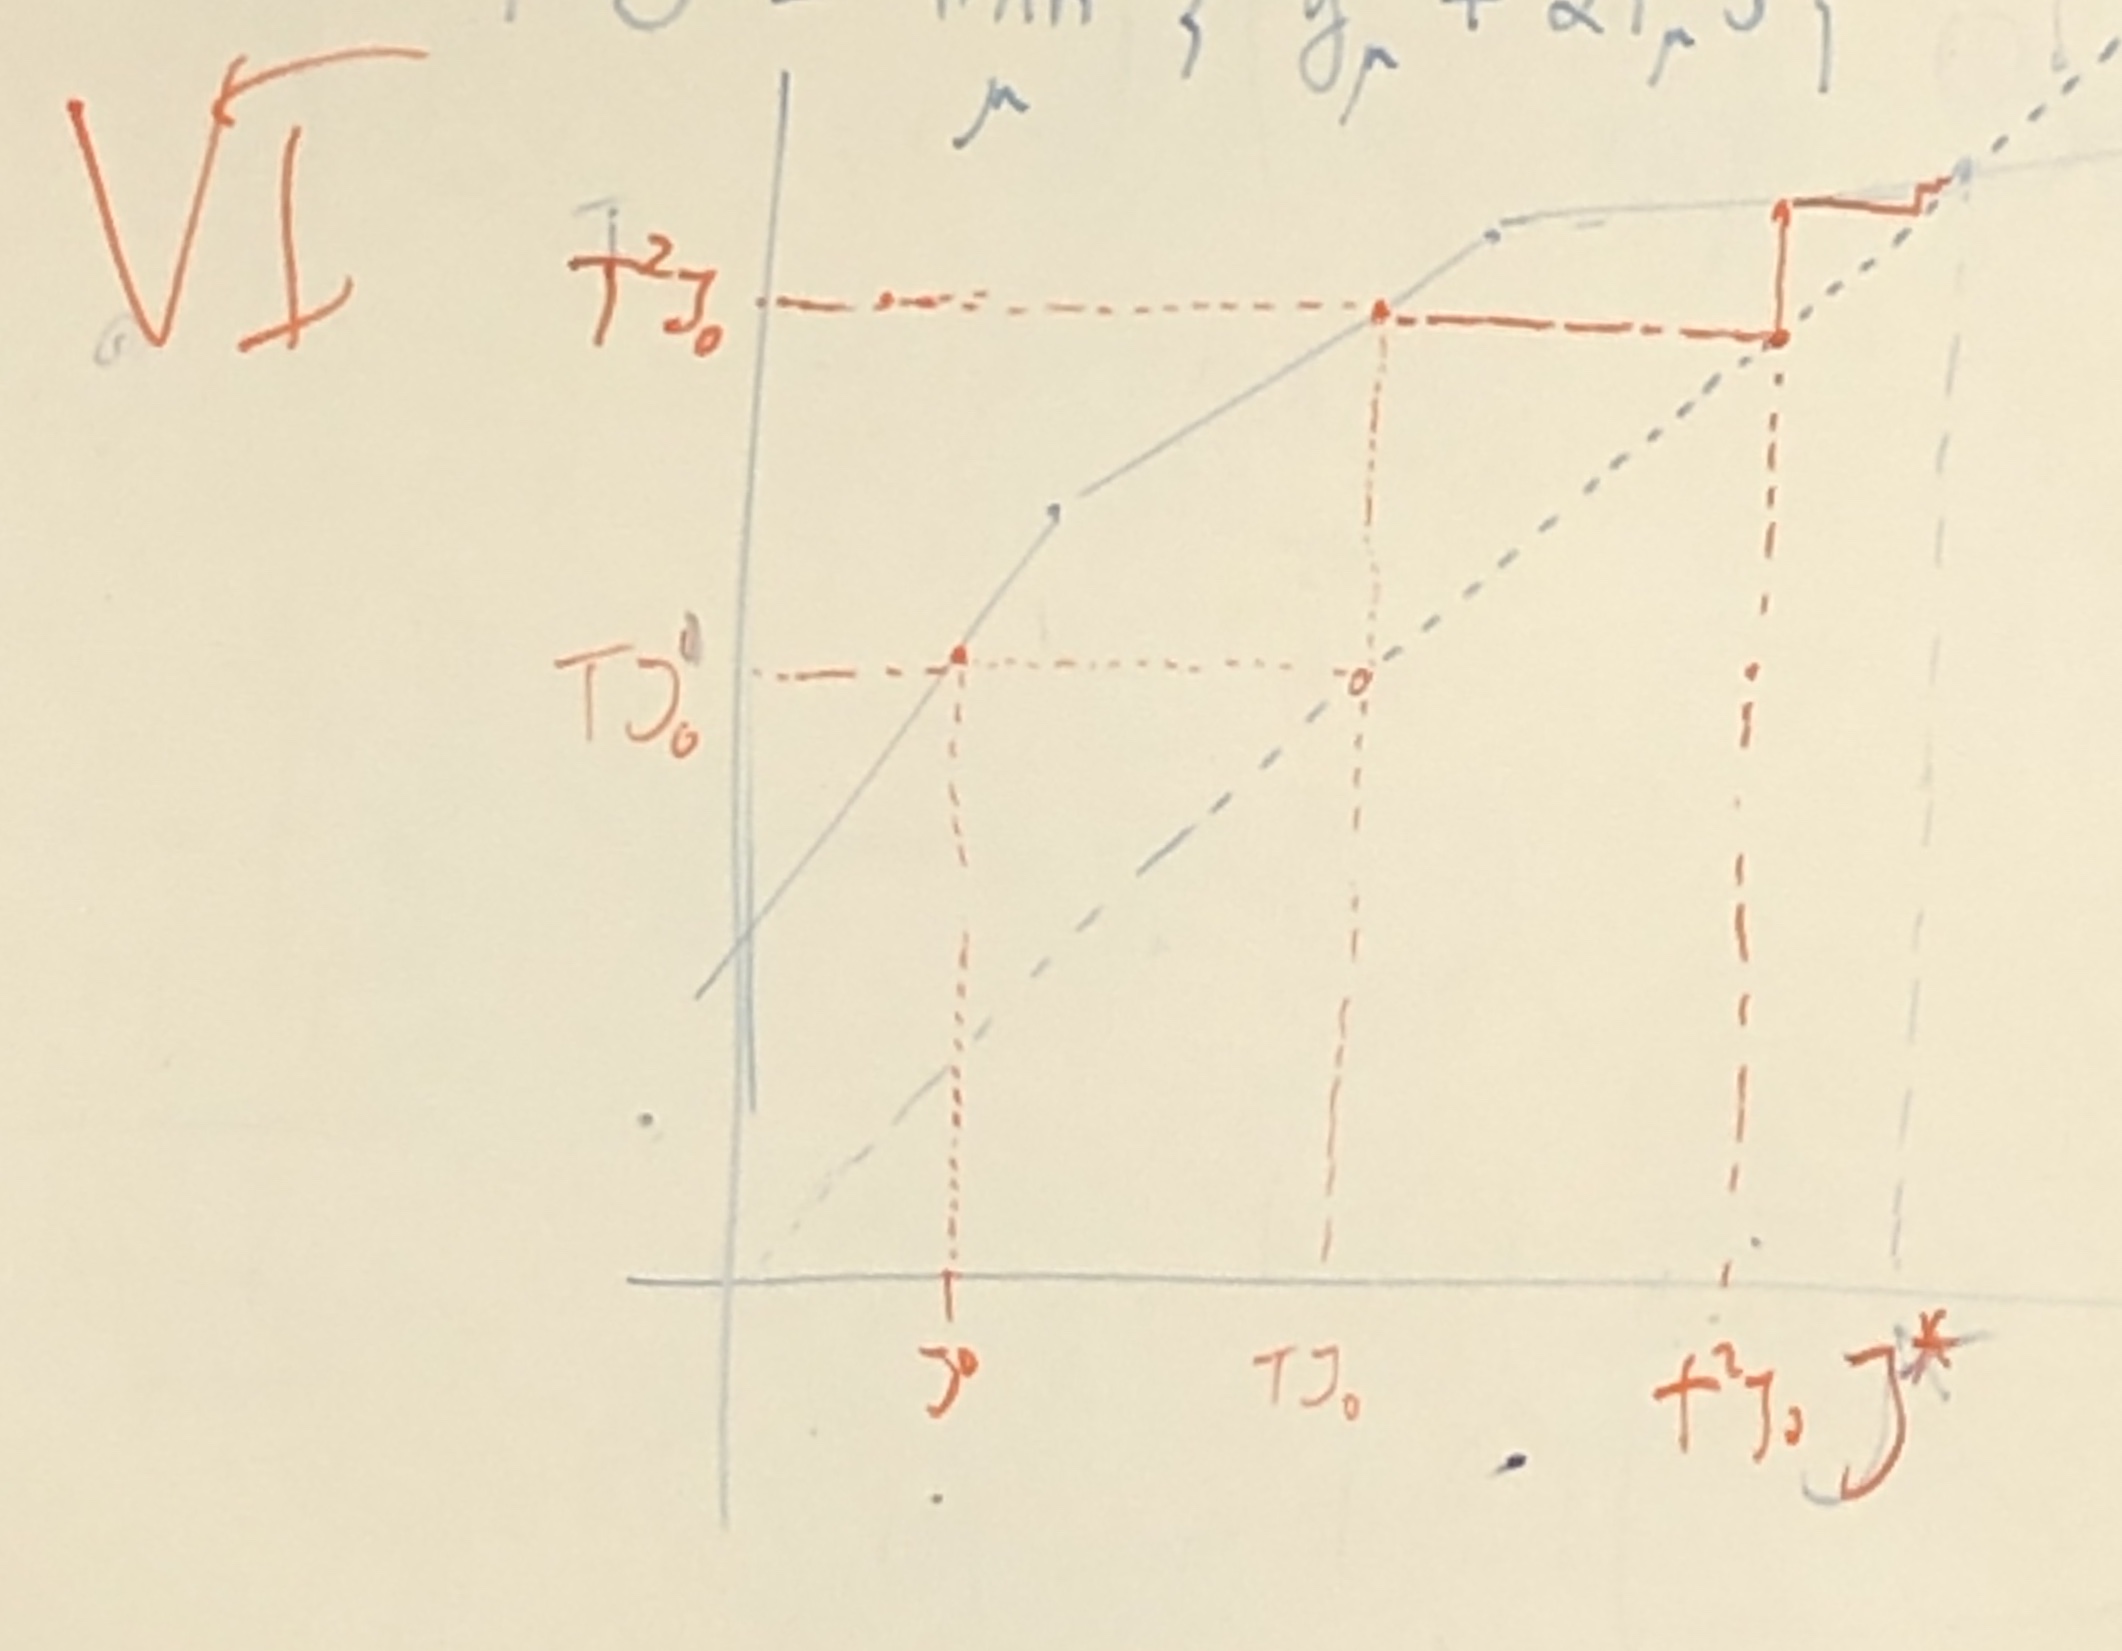 TJ = min { g_μ + αP_μ J }
μ
VI
T²J₀
TJ₀
J⁰ TJ₀ T²J₀ J*